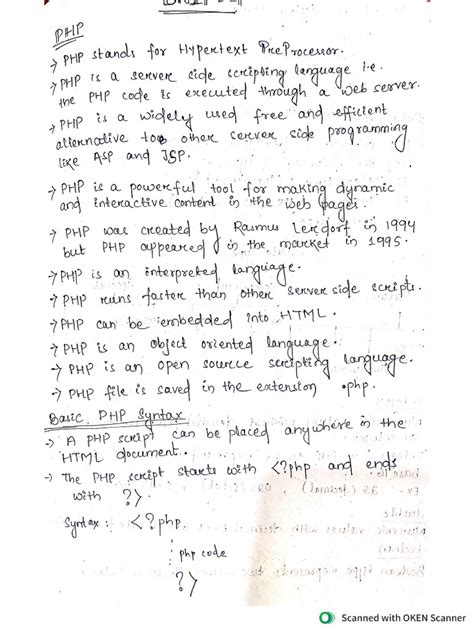 PHP
→ PHP stands for Hypertext PreProcessor.
→ PHP is a server side scripting language i.e.
the PHP code is executed through a web server.
→ PHP is a widely used free and efficient
alternative to other server side programming
like ASP and JSP.
→ PHP is a powerful tool for making dynamic
and interactive content in the web pages.
→ PHP was created by Rasmus Lerdorf in 1994
but PHP appeared in the market in 1995.
→ PHP is an interpreted language.
→ PHP runs faster than other server side scripts.
→ PHP can be embedded into HTML.
→ PHP is an object oriented language.
→ PHP is an open source scripting language.
→ PHP file is saved in the extension .php.
Basic PHP Syntax
→ A PHP script can be placed anywhere in the
HTML document.
→ The PHP script starts with <?php and ends
with ?>.
Syntax: <?php
php code
?>
Scanned with OKEN Scanner